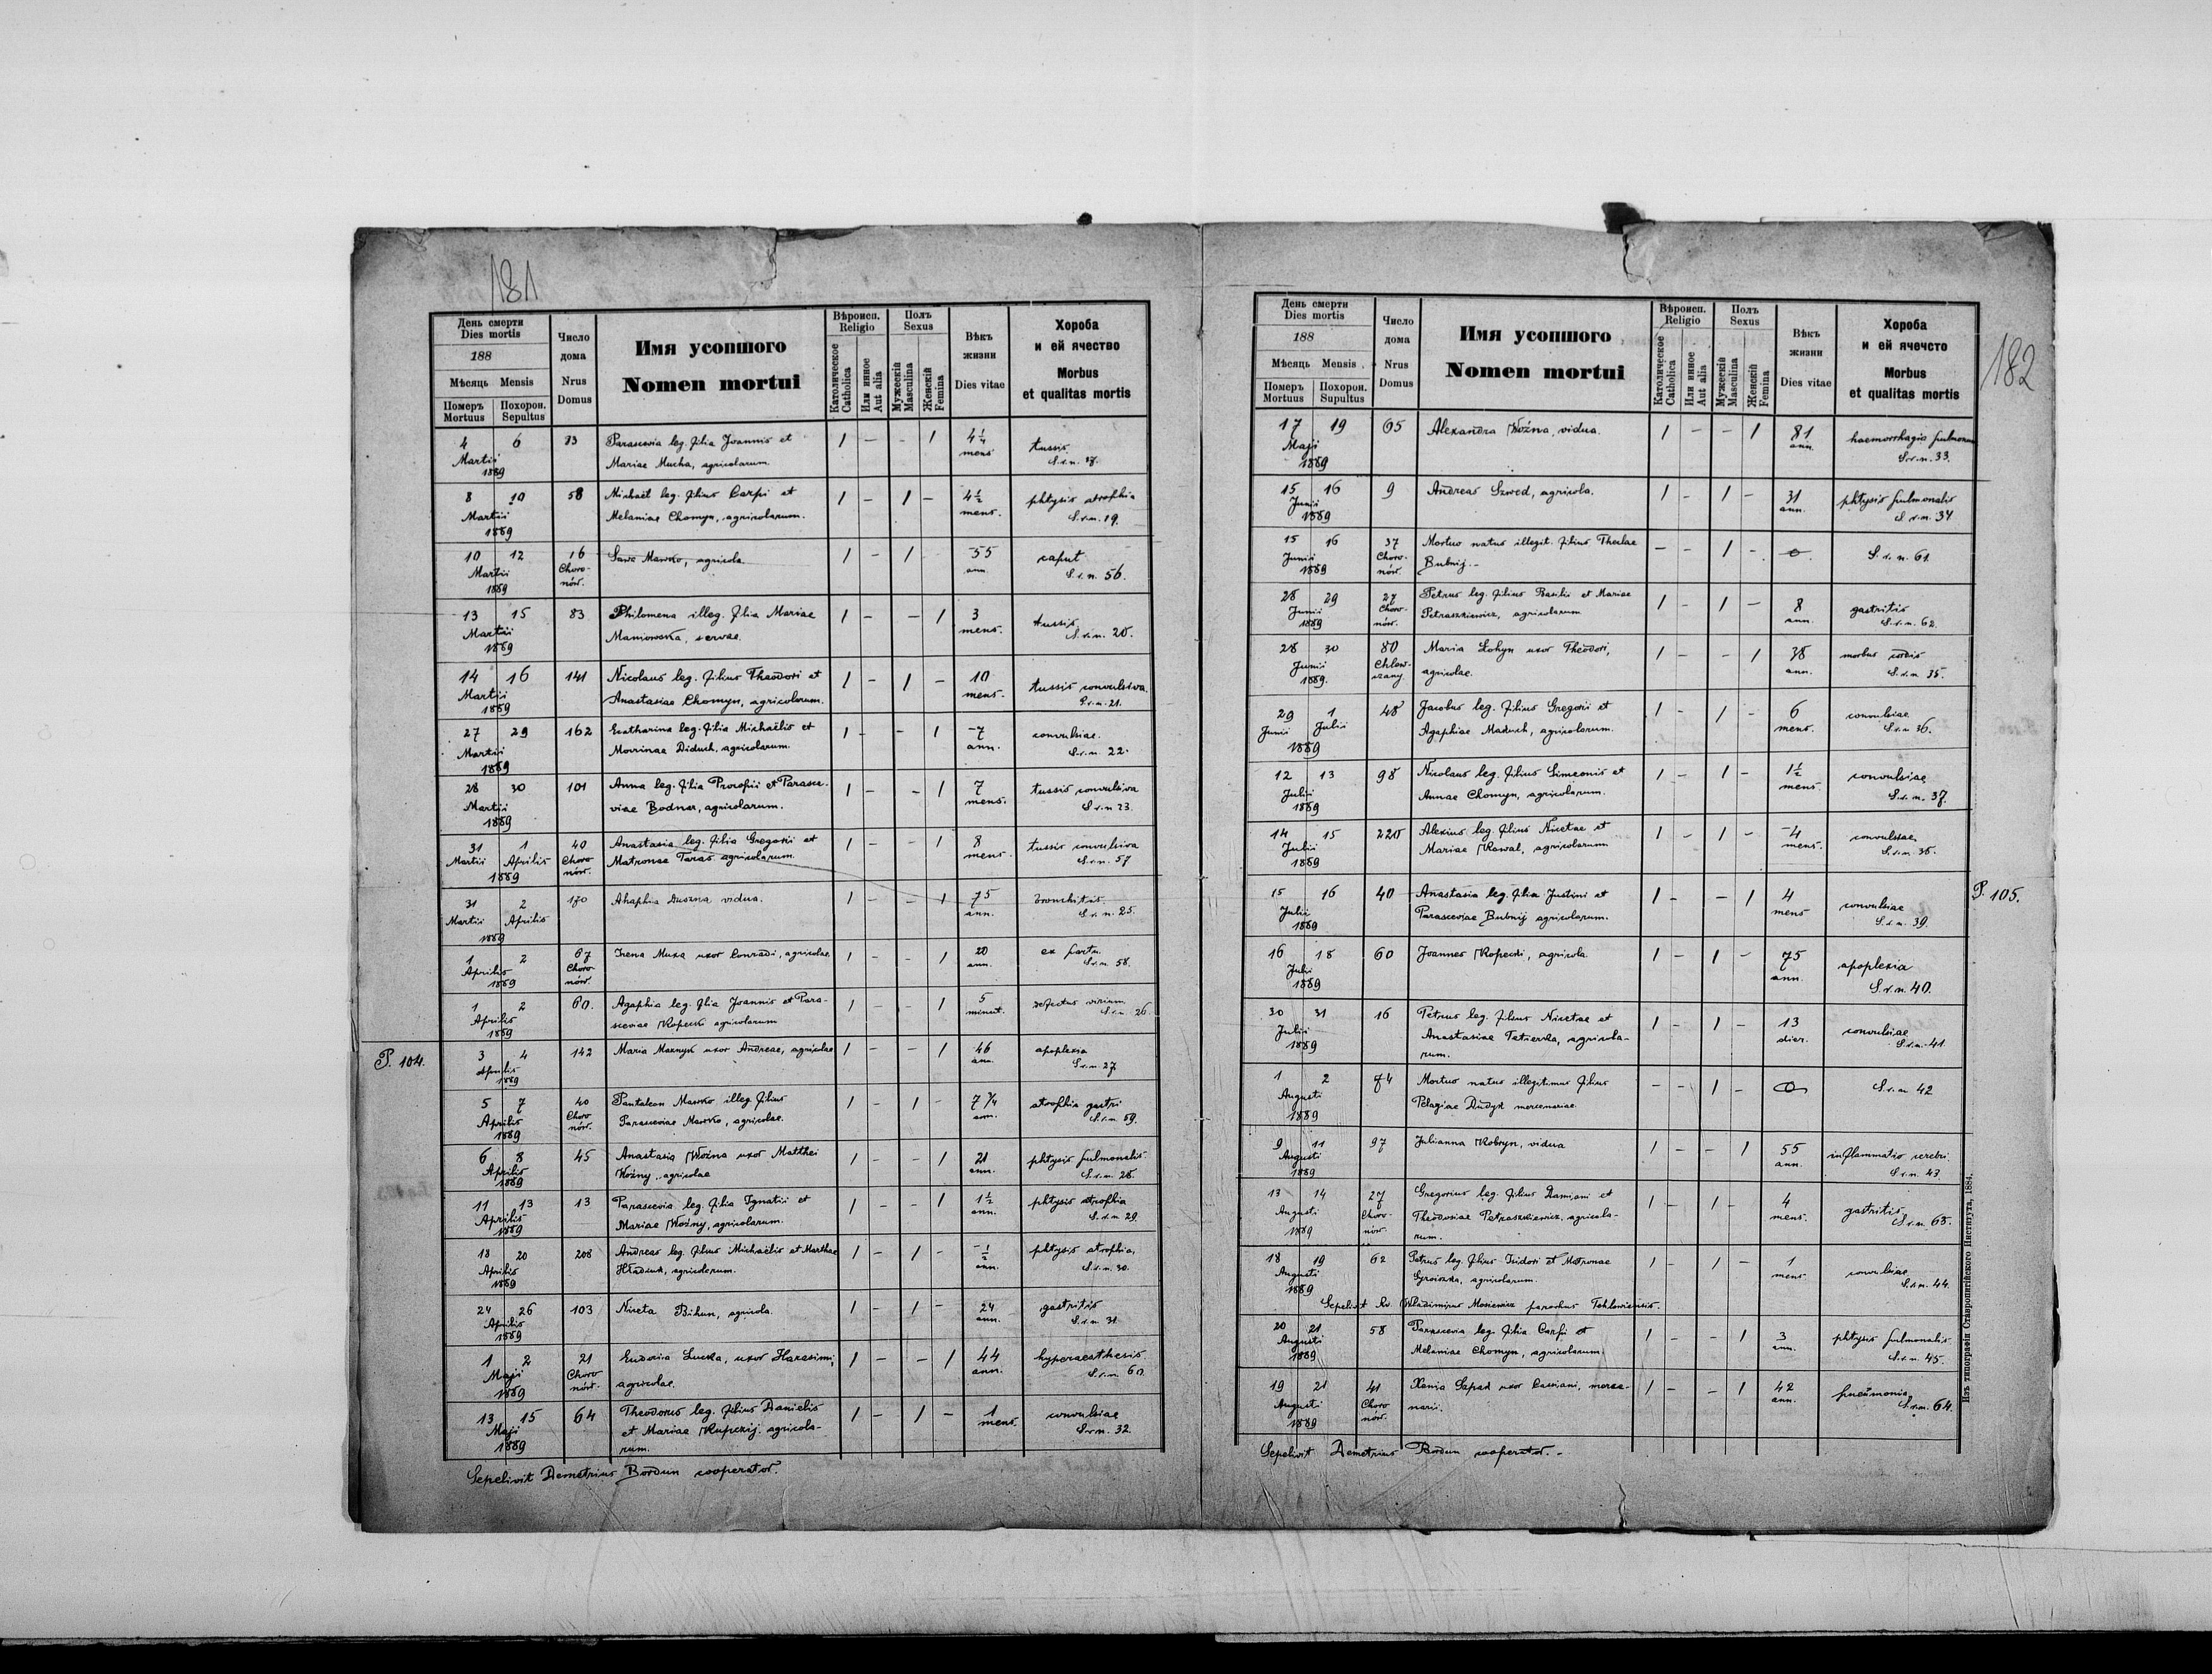 181
День смерти
Dies mortis
188
Мѣсяць Mensis
Померъ Mortuus
Похорон. Sepultus
Число дома
Nrus Domus
Имя усопшого
Nomen mortui
Вѣроисп. Religio
Католическое Catholica
Или инное Aut alia
Полъ Sexus
Мужескій Masculina
Женскій Femina
Вѣкъ жизни
Dies vitae
Хороба
и ей ячество
Morbus
et qualitas mortis
4 6 83 Parascevia leg. filia Joannis et 1 - - 1 4 1/4 tussis
Martii Mariae Mucha, agricolarum. mens
1889
8 10 58 Michaël leg. filius Carpi et 1 - 1 - 4 1/2 phtysis atrophia
Martii Melaniae Chomyn, agricolarum. mens. S.v.n. 19.
1889
10 12 16 Sawa Mawko, agricola. 1 - 1 - 55 caput
Martii Choro- ann. S.v.n. 56.
1889 nów.
13 15 83 Philomena illeg. filia Mariae 1 - - 1 3 tussis
Martii Maniowska, servae. mens. S.v.n. 20.
1889
14 16 141 Nicolaus leg. filius Theodori et 1 - 1 - 10 tussis convulsiva
Martii Anastasiae Chomyn, agricolarum. mens. S.v.n. 21.
1889
27 29 162 Ecatharina leg. filia Michaëlis et 1 - - 1 7 convulsiae.
Martii Diduch, agricolarum. ann. S.v.n. 22.
1889
28 30 101 Anna leg. filia Procopii et Parasce- 1 - - 1 7 tussis convulsiva
Martii viae Bodnar, agricolarum. mens. S.v.n 23.
1889
31 1 40 Anastasia leg. filia Gregorii et 1 - - 1 8 tussis convulsiva
Martii Aprilis Choro- Matronae Taras agricolarum. mens. S.v.n. 57
1889 nów.
31 2 Ahaphia vidua. 1 - - 1 75 bronchitis.
Martii Aprilis ann. S.v.n. 25.
1889
1 2 67 Irena uxor Conradi, agricolae 1 - - 1 20 ex partu.
Aprilis Choro- ann. S.v.n. 58.
1889 nów.
1 2 60. Agaphia leg. filia Joannis et Para- 1 - - 1 5 defectus virium.
Aprilis sceviae Kopecki agricolarum minut. S.v.n. 26.
1889
P. 104.
3 4 142 Maria uxor Andreae, agricolae 1 - - 1 46 apoplexia
Aprilis ann. S.v.n. 27
1889
5 7 40 Pantaleon Mawko illeg. filius 1 - 1 - 7 3/4 atrophia gastri
Aprilis Choro- Parasceviae Mawko, agricolae. ann. S.v.n. 59.
1889 nów.
6 8 45 Anastasia Woźna uxor Matthei 1 - - 1 21 phtysis pulmonalis
Aprilis Woźny, agricolae ann. S.v.n. 28.
1889
11 13 13 Parascevia leg. filia Ignatii et 1 - - 1 1 1/2 phtysis atrophia
Aprilis Mariae Woźny, agricolarum. ann. S.v.n. 29.
1889
18 20 208 Andreas leg. filius Michaëlis et Marthae 1 - 1 - 1/2 phtysis atrophia,
Aprilis agricolarum. ann. S.v.n. 30.
1889
24 26 103 Niceta Bihun, agricola. 1 - 1 - 24 gastritis
Aprilis ann. S.v.n. 31.
1889
1 2 21 Eudocia Lucka, uxor Harasimi, 1 - - 1 44 hyperaesthesis
Maji Choro agricolae. ann. S.v.n. 60.
1889 nów.
13 15 64 Theodorus leg. filius Danielis 1 - 1 - 1 convulsiae
Maji et Mariae Kupczij. agricola- mens. S.v.n. 32.
1889 rum.
Sepelivit Demetrius Bordun cooperator.
182
День смерти
Dies mortis
188
Мѣсяць Mensis
Померъ Mortuus
Похорон. Supultus
Число дома
Nrus Domus
Имя усопшого
Nomen mortui
Вѣроисп. Religio
Католическое Catholica
Или инное Aut alia
Полъ Sexus
Мужескій Masculina
Женскій Femina
Вѣкъ жизни
Dies vitae
Хороба
и ей ячечсто
Morbus
et qualitas mortis
17 19 65 Alexandra Woźna, vidua. 1 - - 1 81 haemorrhagia pulmonum
Maji ann. S.v.n. 33.
1889
15 16 9 Andreas Szwed, agricola. 1 - 1 - 31 phtysis pulmonalis
Junii ann. S.v.n. 34
1889
15 16 37 Mortuo natus illegit. filius Theclae - - 1 - 0 S.v.n. 61.
Junii Choro- Bubnij.-
1889 nów.
28 29 27 Petrus leg. filius Basilii et Mariae 1 - 1 - 8 gastritis
Junii Choro- Petraszkiewicz, agricolarum ann. S.v.n. 62.
1889 nów.
28 30 80 Maria Łohyn uxor Theodori, 1 - - 1 38 morbus cordis
Junii Chlow- agricolae. ann. S.v.n. 35.
1889. czany
29 1 48 Jacobus leg. filius Gregorii et 1 - 1 - 6 convulsiae
Junii Julii Agaphiae Maduch, agricolarum. mens. S.v.n. 36.
1889
12 13 98 Nicolaus leg. filius Simeonis et 1 - 1 - 1 1/2 convulsiae
Julii Annae Chomyn, agricolarum. mens. S.v.n. 37.
1889
14 15 220 Alexius leg. filius Nicetae et 1 - 1 - 4 convulsiae
Julii Mariae Kowal, agricolarum mens. S.v.n. 38.
1889
15 16 40 Anastasia leg. filia Justini et 1 - - 1 4 convulsiae
Julii Parasceviae Bubnij agricolarum. mens S.v.n. 39.
1889
P. 105.
16 18 60 Joannes Kopecki, agricola. 1 - 1 - 75 apoplexia
Julii ann. S.v.n. 40.
1889
30 31 16 Petrus leg. filius Nicetae et 1 - 1 - 13 convulsiae
Julii Anastasiae agricola- dier. S.v.n. 41.
1889 rum.
1 2 74 Mortuo natus illegitimus filius - - 1 - 0 S.v.n. 42
Augusti Pelagiae Dudyk mercenariae.
1889
9 11 97 Julianna Kobryn, vidua 1 - - 1 55 inflammatio cerebri.
Augusti ann. S.v.n. 43.
1889
13 14 27 Gregorius leg. filius Damiani et 1 - 1 - 4 gastritis
Augusti Choro- Theodosiae Petraszkiewicz, agricola- mens. S.v.n. 63.
1889 nów. rum.
18 19 62 Petrus leg. filius Isidori et Matronae 1 - 1 - 1 convulsiae
Augusti agricolarum. mens. S.v.n. 44.
1889
Sepelivit Rv. Wladimirus Mosiewicz parochus
20 21 58 Parascevia leg. filia Carpi et 1 - - 1 3 phtysis pulmonalis
Augusti Melaniae Chomyn, agricolarum. ann. S.v.n. 45.
1889
19 21 41 Xenia Sapad uxor Cassiani, merce- 1 - - 1 42 pneumonia
Augusti Choro narii. ann. S.v.n. 64.
1889 nów.
Sepelivit Demetrius Bordun cooperator.-
Изъ типографіи Ставропигійского Института, 1884.